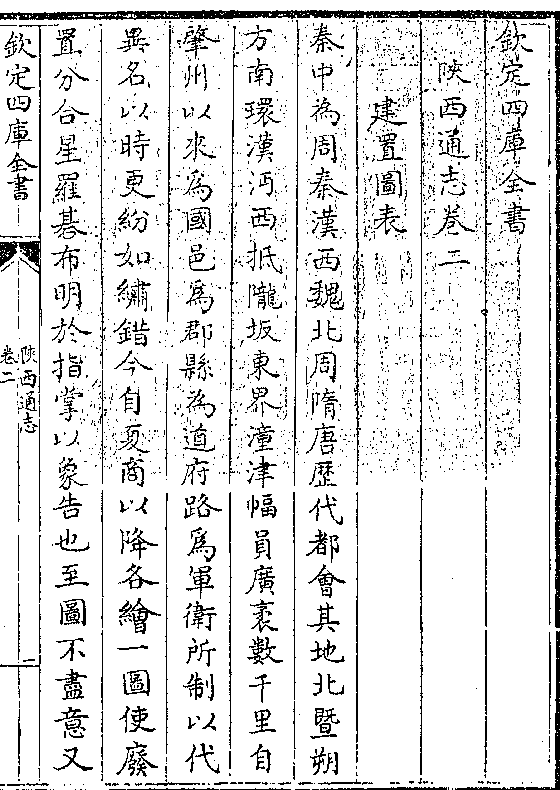 欽定四庫全書
陜西通志卷二
建置圖表
秦中為周秦漢西魏北周隋唐歴代都會其地北暨朔
方南環漢沔西抵隴坂東界潼津幅員廣袤數千里自
肇州以來為國邑為郡縣為道府路為軍衛所制以代
異名以時更紛如繡錯今自夏商以降各繪一圖使廢
置分合星羅棊布明於指掌以象告也至圖不盡意又
欽定四庫全書
陜西通志
卷二
一